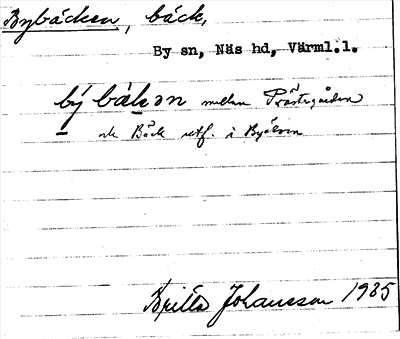 Bybäcken, bäck,
By sn, Näs hd, Värml.l.
bý bäkən mellan Prästgården
och Bäck utf. i Byälven
Britta Johansson 1935